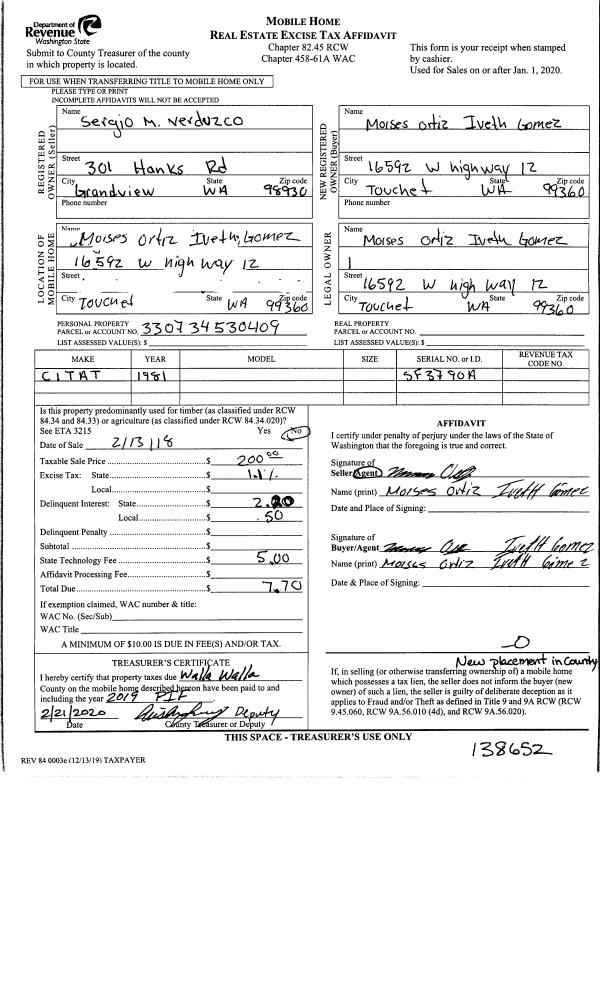 Department of
Revenue
Washington State
Submit to County Treasurer of the county
in which property is located.
MOBILE HOME
REAL ESTATE EXCISE TAX AFFIDAVIT
Chapter 82.45 RCW
Chapter 458-61A WAC
This form is your receipt when stamped
by cashier.
Used for Sales on or after Jan. 1, 2020.
FOR USE WHEN TRANSFERRING TITLE TO MOBILE HOME ONLY
PLEASE TYPE OR PRINT
INCOMPLETE AFFIDAVITS WILL NOT BE ACCEPTED
REGISTERED
OWNER (Seller)
Name
Sergio M. Verduzco
Street
301 Hanks Rd
City State Zip code
Grandview WA 98930
Phone number
NEW REGISTERED
OWNER (Buyer)
Name
Moises Ortiz Iveth Gomez
Street
16592 W highway 12
City State Zip code
Touchet WA 99360
Phone number
LOCATION OF
MOBILE HOME
Name
Moises Ortiz Iveth Gomez
16592 W high way 12
Street
City State Zip code
Touchet WA 99360
LEGAL OWNER
Name
Moises Ortiz Iveth Gomez
Street
16592 W high way 12
City State Zip code
Touchet WA 99360
PERSONAL PROPERTY
PARCEL or ACCOUNT NO. 330734530409
LIST ASSESSED VALUE(S): $
REAL PROPERTY
PARCEL or ACCOUNT NO.
LIST ASSESSED VALUE(S): $
MAKE YEAR MODEL SIZE SERIAL NO. or I.D. REVENUE TAX
CODE NO.
CITAT 1981 SF3790A
Is this property predominantly used for timber (as classified under RCW
84.34 and 84.33) or agriculture (as classified under RCW 84.34.020)?
See ETA 3215 Yes No
Date of Sale 2/13/18
Taxable Sale Price $ 200.00
Excise Tax: State $ 1.1%
Local $
Delinquent Interest: State $ 2.20
Local $ .50
Delinquent Penalty $
Subtotal $
State Technology Fee $ 5.00
Affidavit Processing Fee $
Total Due $ 7.70
If exemption claimed, WAC number & title:
WAC No. (Sec/Sub)
WAC Title
A MINIMUM OF $10.00 IS DUE IN FEE(S) AND/OR TAX.
AFFIDAVIT
I certify under penalty of perjury under the laws of the State of
Washington that the foregoing is true and correct.
Signature of
Seller/Agent
Name (print) Moises Ortiz Iveth Gomez
Date and Place of Signing:
Signature of
Buyer/Agent Iveth Gomez
Name (print) Moises Ortiz Iveth Gomez
Date & Place of Signing:
TREASURER'S CERTIFICATE
I hereby certify that property taxes due Walla Walla
County on the mobile home described hereon have been paid to and
including the year 2019 PIF
2/21/2020 Deputy
Date County Treasurer or Deputy
New placement in County
If, in selling (or otherwise transferring ownership of) a mobile home
which possesses a tax lien, the seller does not inform the buyer (new
owner) of such a lien, the seller is guilty of deliberate deception as it
applies to Fraud and/or Theft as defined in Title 9 and 9A RCW (RCW
9.45.060, RCW 9A.56.010 (4d), and RCW 9A.56.020).
THIS SPACE - TREASURER'S USE ONLY
138652
REV 84 0003e (12/13/19) TAXPAYER